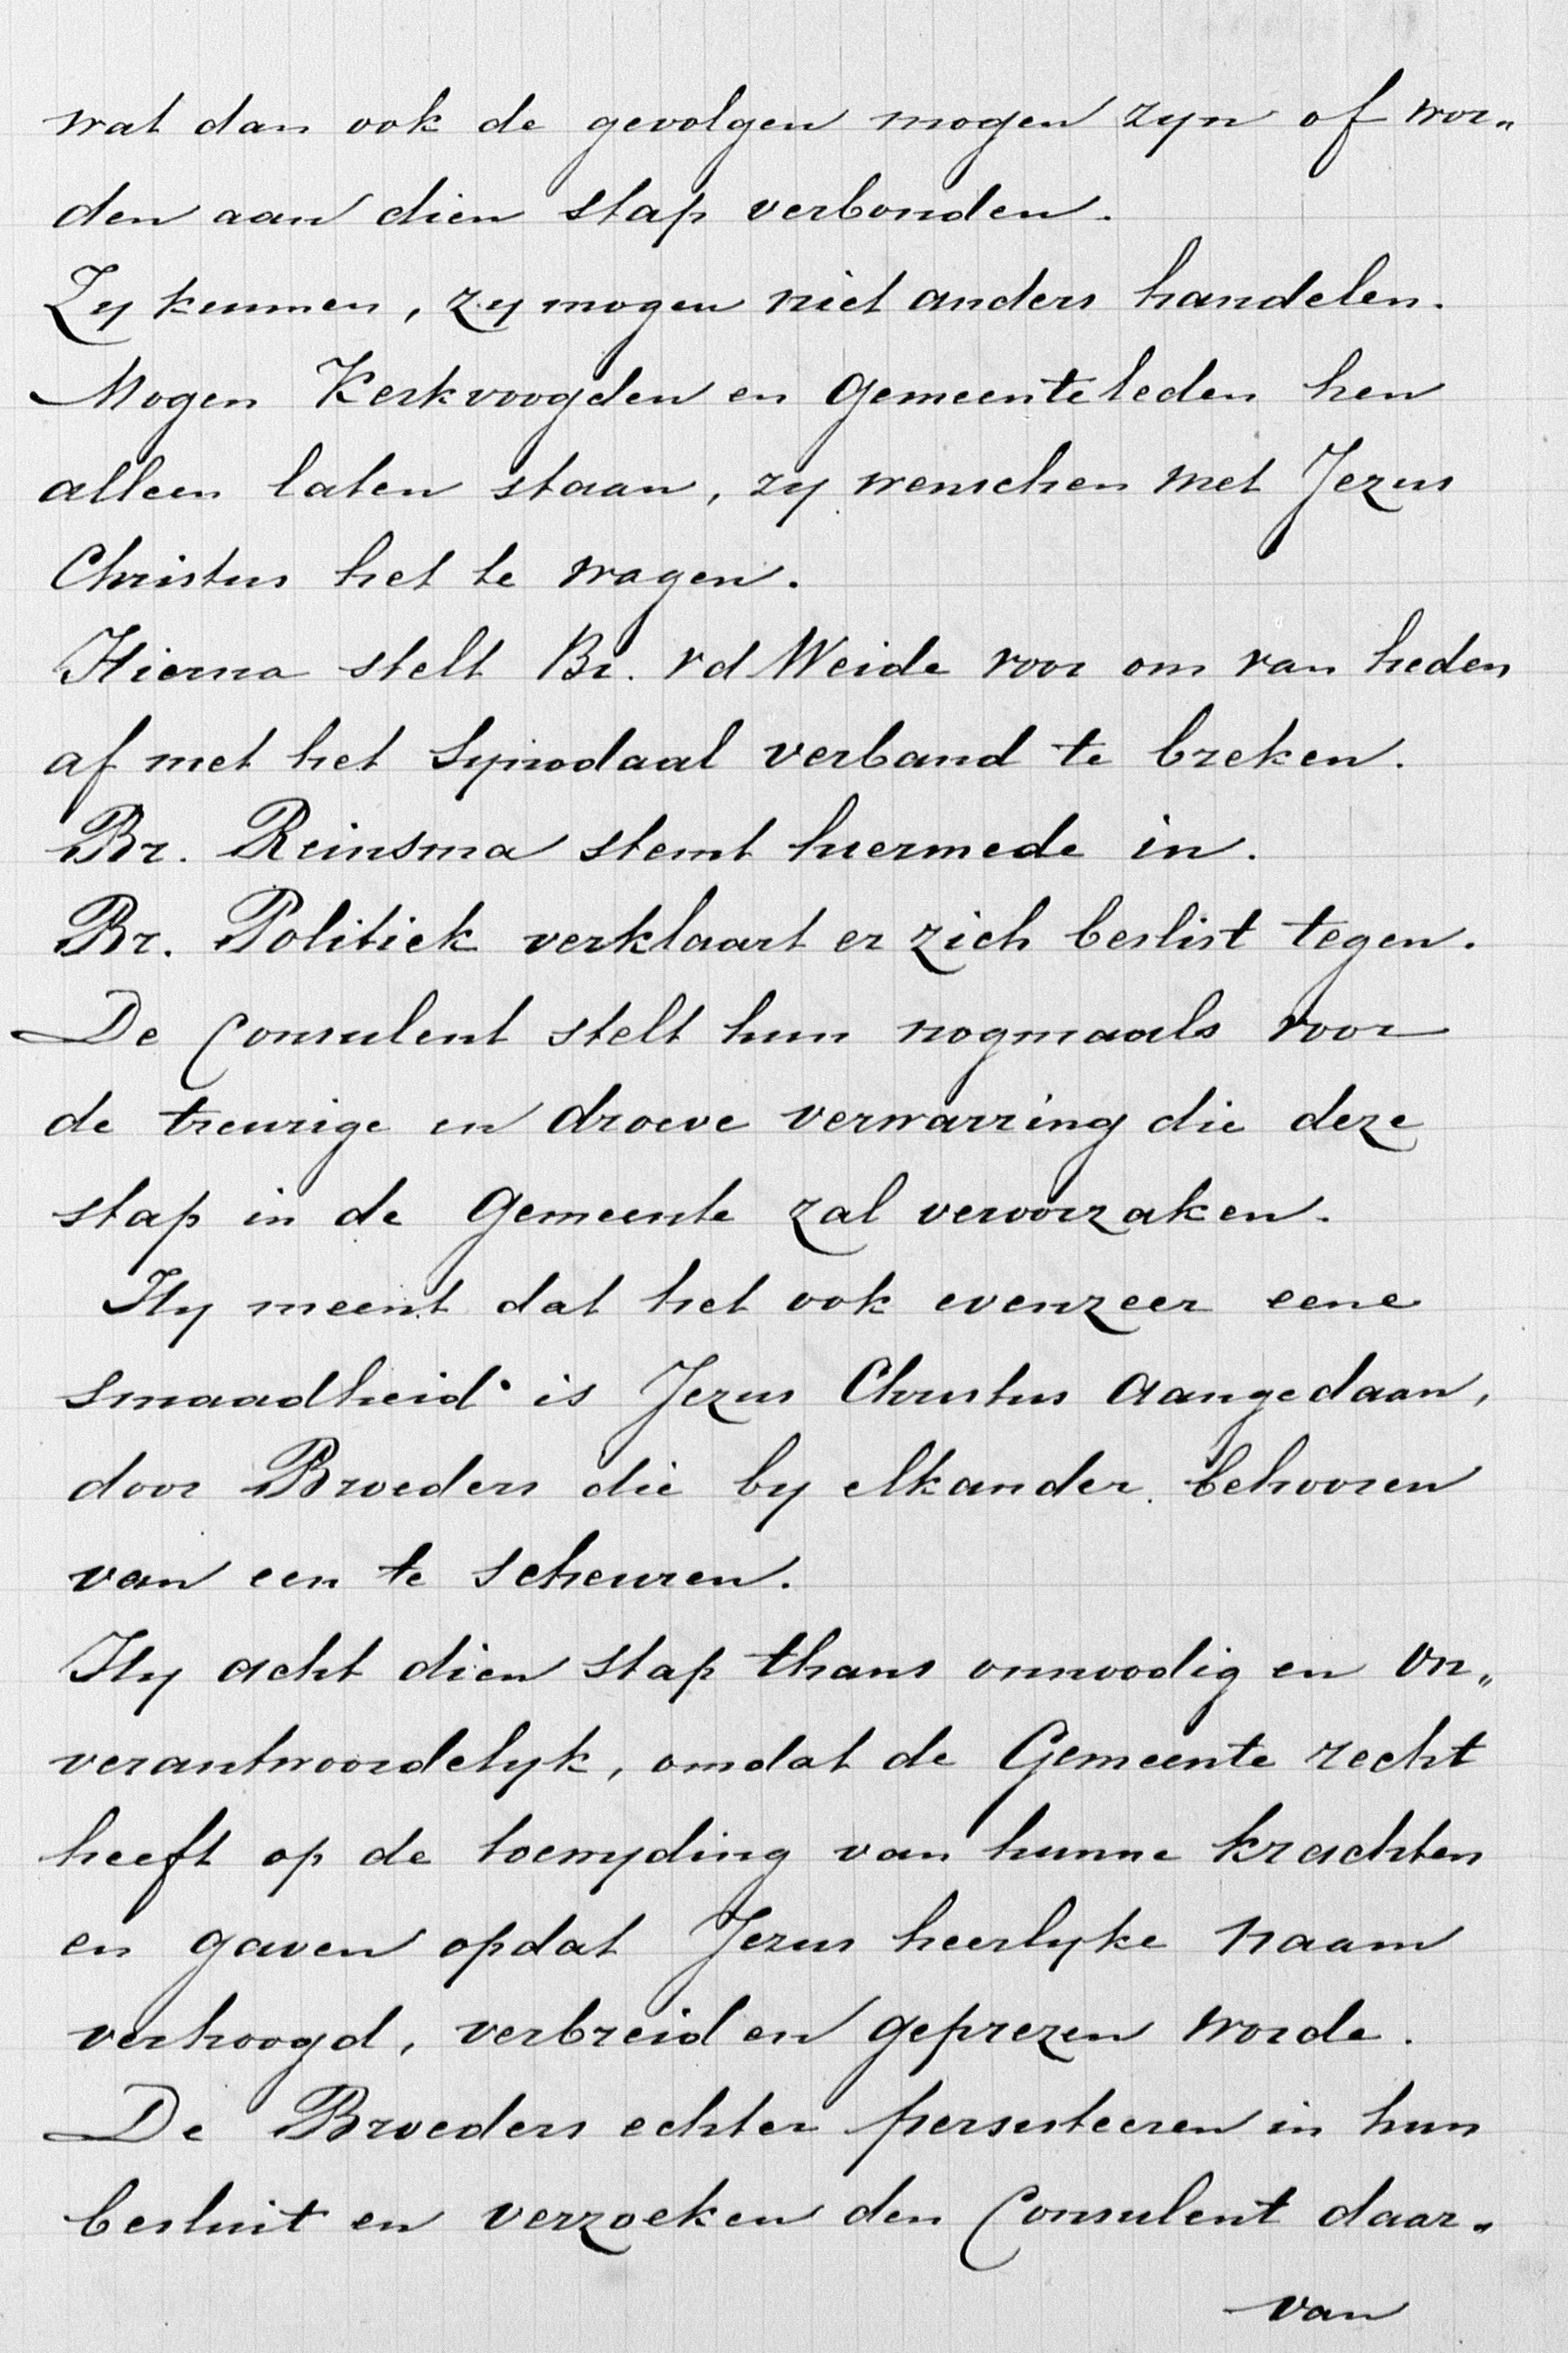 wat dan ook de gevolgen mogen zyn of wor„
den aan dien stap verbonden.
Zy kunnen, zy mogen niet anders handelen.
Mogen Kerkvoogden en Gemeenteleden hen
alleen laten staan, zy wenschen met Jezus
Christus het te wagen.
Hierna stelt Br. vd Weide voor om van heden
af met het Synodaal verband te breken.
Br. Reinsma stemt hiermede in.
Br. Politiek verklaart er zich beslist tegen.
De Consulent stelt hun nogmaals voor
de treurige en droeve verwarring die deze
stap in de Gemeente zal veroorzaken.
Hy meent dat het ook evenzeer eene
smaadheid is Jezus Christus aangedaan,
door Broeders die by elkander behooren
van een te scheuren.
Hy acht dien stap thans onnoodig en on„
verantwoordelyk, omdat de Gemeente recht
heeft op de toewyding van hunne krachten
en gaven opdat Jezus heerlyke naam
verhoogd, verbreid en geprezen worde.
De Broeders echter persisteeren in hun
besluit en verzoeken den Consulent daar„
van